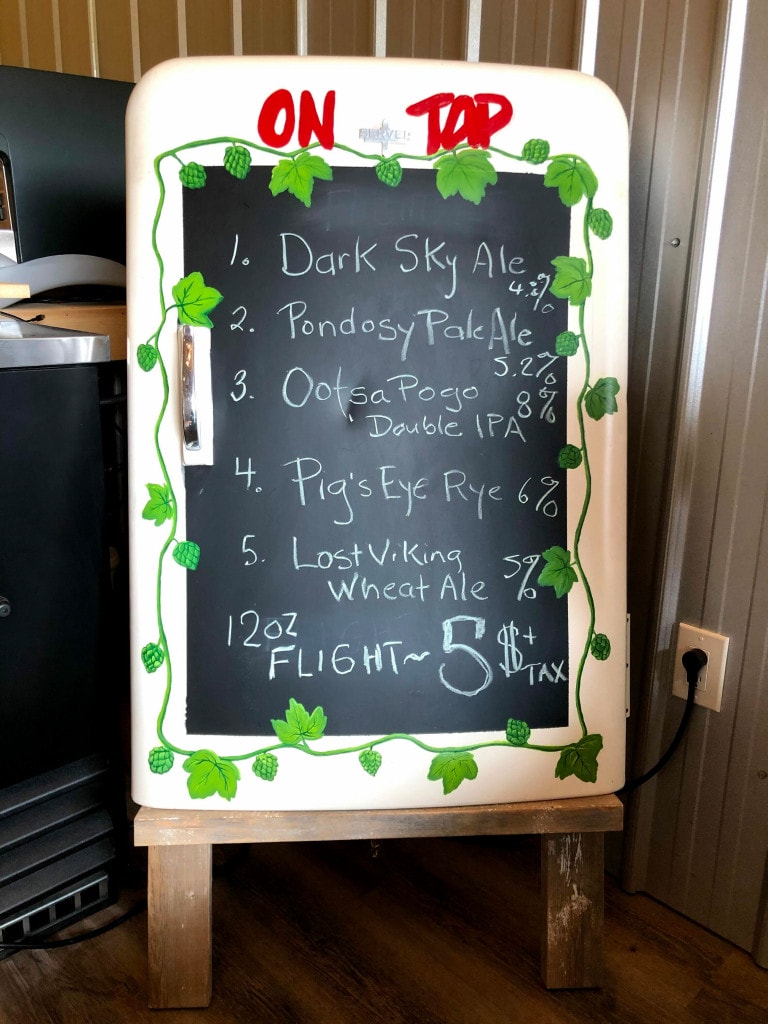 ON TAP
SERVEL
1. Dark Sky Ale
4.8%
2. Pondosy Pale Ale
5.2%
3. Ootsa Pogo 8%
Double IPA
4. Pig's Eye Rye 6%
5. Lost Viking 5%
Wheat Ale
12oz
FLIGHT~ 5$+
TAX